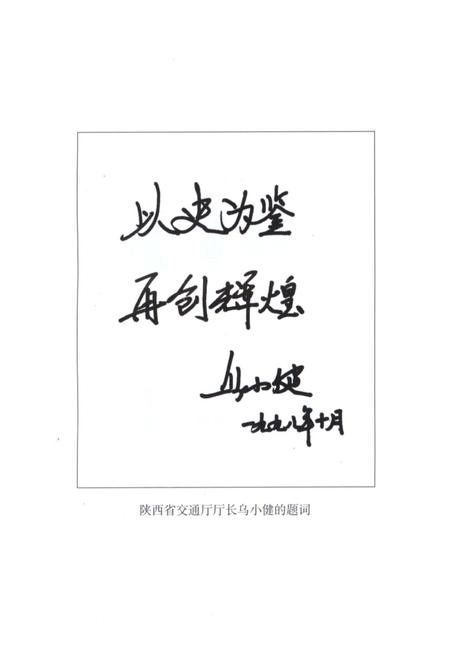 以史为鉴
再创辉煌
乌小健
一九九八年十月
陕西省交通厅厅长乌小健的题词